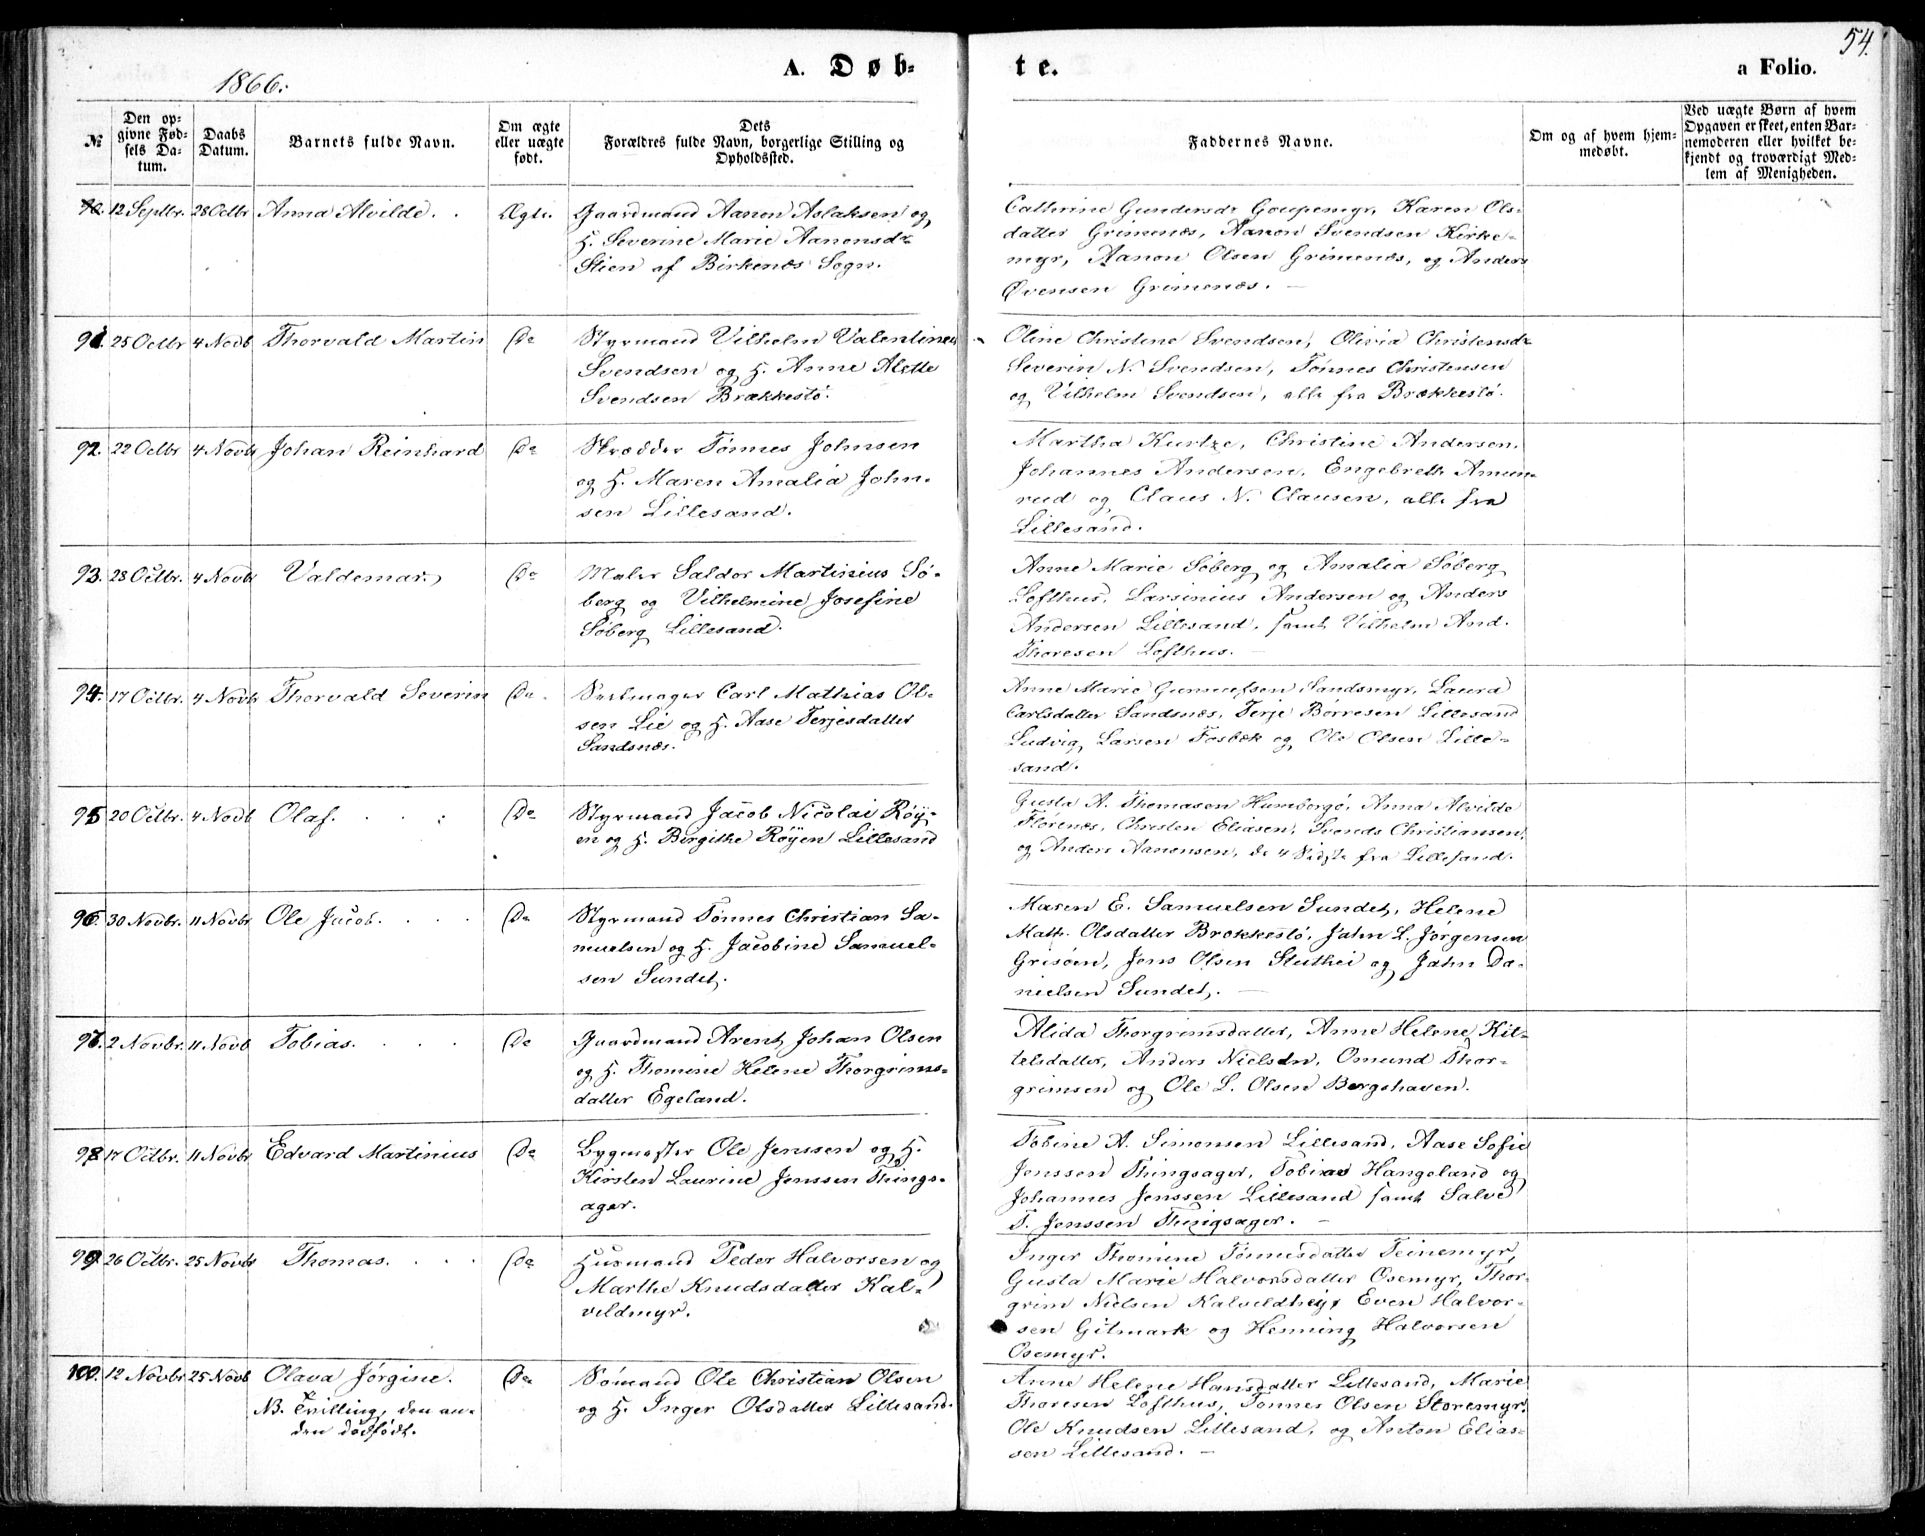 54.
1866.
A. Døb-
te.
a Folio.
№
Den op-
givne Fød-
sels Da-
tum.
Daabs
Datum.
Barnets fulde Navn.
Om ægte
eller uægte
født.
Dets
Forældres fulde Navn, borgerlige Stilling og
Opholdssted.
Faddernes Navne.
Om og af hvem hjem-
medøbt.
Ved uægte Børn af hvem
Opgaven er skeet, enten Bar-
nemoderen eller hvilket be-
kjendt og troværdigt Med-
lem af Menigheden.
90. 12 Septbr. 28 Octbr Anna Alvilde. Ægte.
Gaardmand Aanon Aslaksen og
H. Severine Marie Aanonsdr
Stien af Birkenæs Sogn.
Cathrine Gundersdr Goupemyr, Karen Ols-
datter Grimenæs, Aanon Svendsen Kirke-
myr, Aanon Olsen Grimenæs, og Anders
Øvensen Grimenæs. —
91. 25 Octbr 4 Novb Thorvald Martin Do
Styrmand Vilhelm Valentinus
Svendsen og H. Anne Alette
Svendsen Brækkestø.
Oline Christine Svendsen, Olivia Christensdr
Severin N. Svendsen, Tønnes Christensen
og Vilhelm Svendsen, alle fra Brækkestø.
92. 22 Octbr 4 Novbr Johan Reinhard Do
Skrædder Tønnes Johnsen
og H. Maren Amalia John-
sen Lillesand.
Martha Kurtze, Christine Andersen,
Johannes Andersen, Engebrett Amun-
rud og Claus N. Clausen, alle fra
Lillesand.
93. 28 Octbr. 4 Novbr Valdemar. Do
Maler Saldor Martinius Sø-
berg og Vilhelmine Josefine
Søberg Lillesand.
Anne Marie Søberg og Amalia Søberg
Lofthus, Larsinius Andersen og Anders
Andersen Lillesand, samt Vilhelm And.
Thoresen Lofthus. —
94. 17 Octbr. 4 Novbr Thorvald Severin Do
Carl Mathias Ol-
sen Lie og H. Aase Terjesdatter
Sandsnæs.
Anne Marie Gunnufsen Sandsmyr, Laura
Carlsdatter Sandsnæs, Terje Børresen Lillesand
Ludvig Larsen Fosbæk og Ole Olsen Lille-
sand.
95 20 Octbr. 4 Novb Olaf. Do
Styrmand Jacob Nicolai Røy-
en og H. Birgithe Røyen Lillesand
Gusta A. Thomasen Humborgø, Anna Alvilde
Flørenæs, Christen Eliasen, Svends Christiansen,
og Anders Aanonsen, de 4 Sidste fra Lillesand.
96. 30 Novbr. 11 Novbr Ole Jacob. Do
Styrmand Tønnes Christian Sa-
muelsen og H. Jacobine Samuel-
sen Sundet.
Maren E. Samuelsen Sundet, Helene
Math. Olsdatter Brækkestø, Jahn L. Jørgensen
Grisøen, Jens Olsen Sluthei og Jahn Da-
nielsen Sundet. —
97. 2 Novbr. 11 Novb Tobias. Do
Gaardmand Arent Johan Olsen
og H. Thomine Helene Thorgrims-
datter Egeland.
Alida Thorgrimsdatter, Anne Helene Kit-
telsdatter, Anders Nielsen, Omund Thor-
grimsen og Ole L. Olsen Bergshaven.
98 17 Octbr. 11 Novbr Edvard Martinius Do
Bygmester Ole Jenssen og H.
Kirsten Laurine Jenssen Things-
ager.
Tobine A. Simonsen Lillesand, Aase Sofie
Jenssen Thingsager, Tobias Hangeland og
Johannes Jenssen Lillesand samt Salve
T. Jenssen Thingsager. —
99. 26 Octbr. 25 Novbr Thomas. Do
Husmand Peder Halvorsen og
Marthe Knudsdatter Kal-
veldmyr.
Inger Thomine Tønnesdatter Teinemyr,
Gusta Marie Halvorsdatter Osemyr, Thor-
grim Nielsen Kalveldhei, Even Halvor-
sen Gitmark og Henning Halvorsen
Osemyr.
100. 12 Novbr 25 Novb Olava Jørgine. Do
NB. Tvilling, den an-
den dødfødt.
Sømand Ole Christian Olsen
og H. Inger Olsdatter Lillesand.
Anne Helene Hansdatter Lillesand, Marie
Thoresen Lofthus, Tønnes Olsen Storemyr,
Ole Knudsen Lillesand, og Anton Elias-
sen Lillesand. —